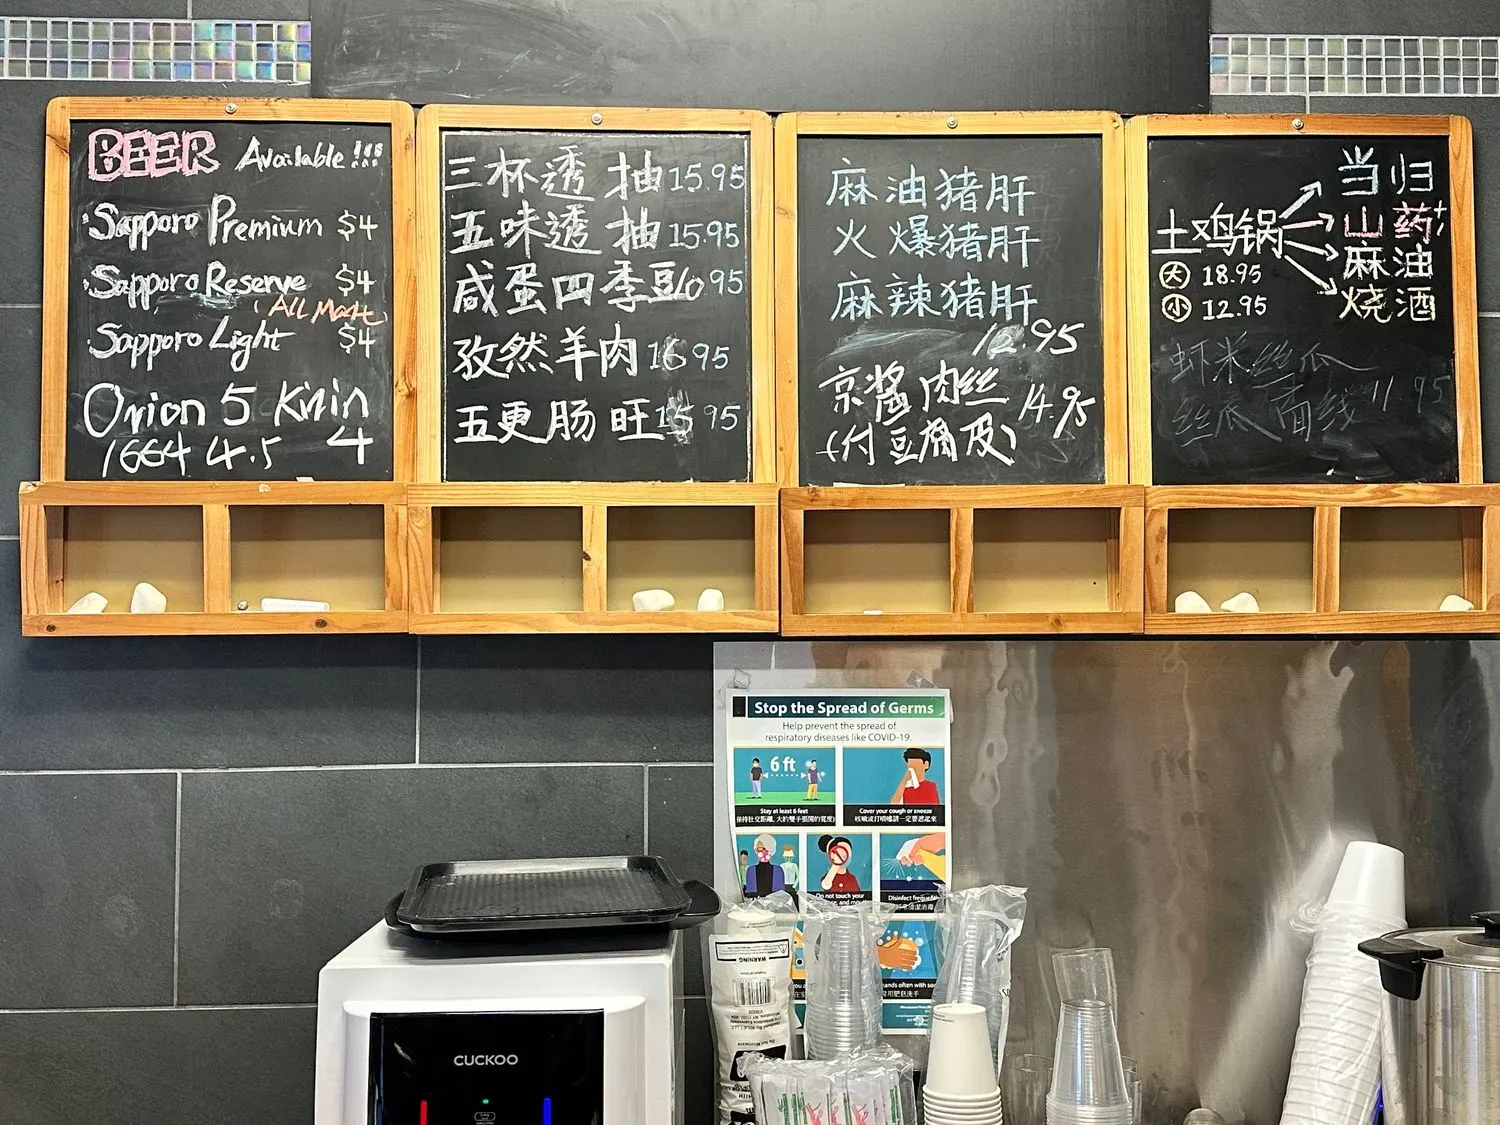 BEER Available !!!
Sapporo Premium $4
Sapporo Reserve $4
(ALL Malt)
Sapporo Light $4
Orion 5 Kirin 4
1664 4.5
三杯透抽 15.95
五味透抽 15.95
咸蛋四季豆 10.95
孜然羊肉 16.95
五更肠旺 15.95
麻油猪肝
火爆猪肝
麻辣猪肝
12.95
京酱肉丝 14.95
(付豆腐皮)
土鸡锅
大 18.95
小 12.95
当归
山药
麻油
烧酒
虾米丝瓜
丝瓜面线 11.95
Stop the Spread of Germs
Help prevent the spread of
respiratory diseases like COVID-19.
6 ft
Stay at least 6 feet
Cover your cough or sneeze
Do not touch your
Disinfect
WARNING
CUCKOO